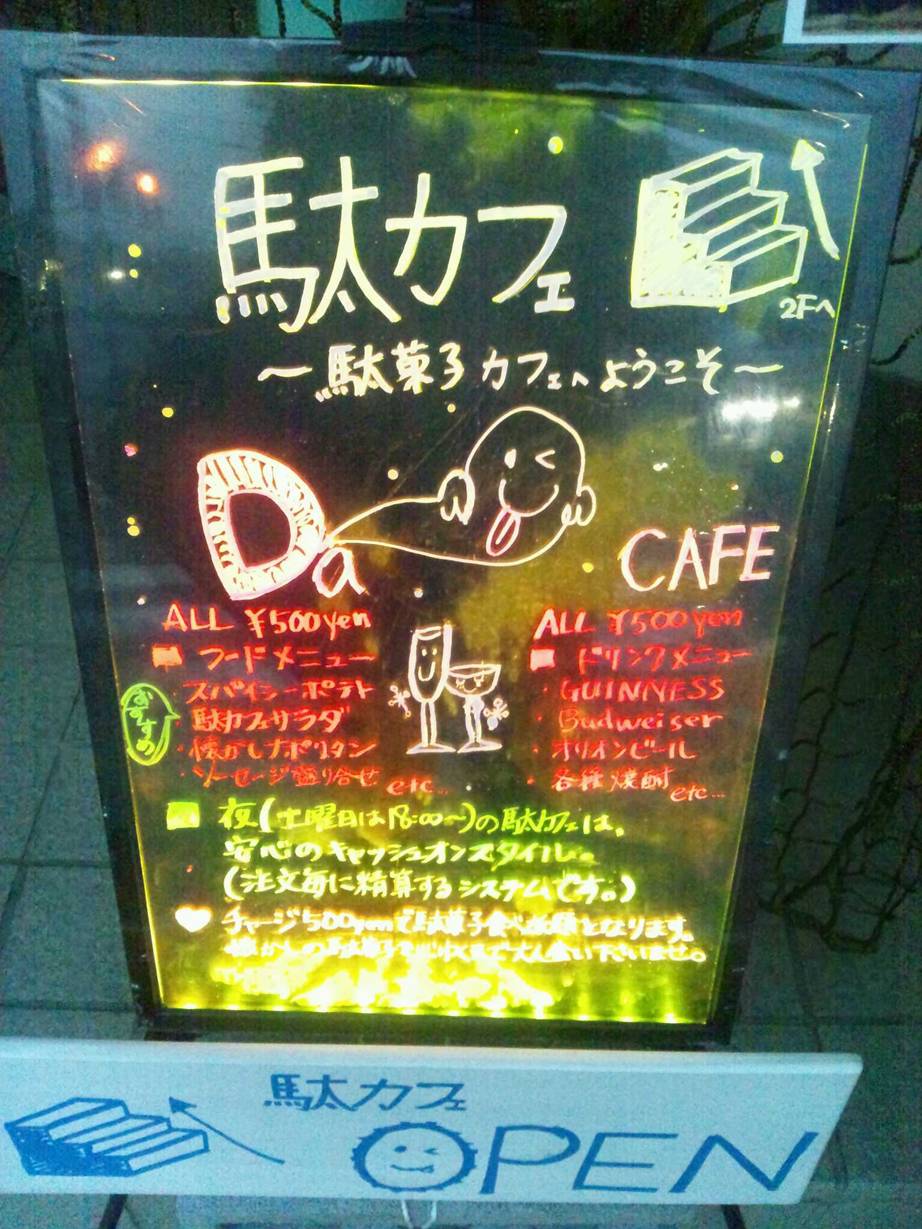 駄カフェ
2Fへ
〜駄菓子カフェへようこそ〜
Da CAFE
ALL ¥500yen
フードメニュー
おすすめ
スパイシーポテト
駄カフェサラダ
・懐かしナポリタン
・ソーセージ盛り合せ etc...
ALL ¥500yen
ドリンクメニュー
・GUINNESS
・Budweiser
・オリオンビール
・各種焼酎 etc...
夜(土曜日は18:00〜)の駄カフェは、
安心のキャッシュオンスタイル。
(注文毎に精算するシステムです。)
チャージ500yenで駄菓子食べ放題となります。
懐かしの駄菓子を心ゆくまで 下さいませ。
駄カフェ
OPEN